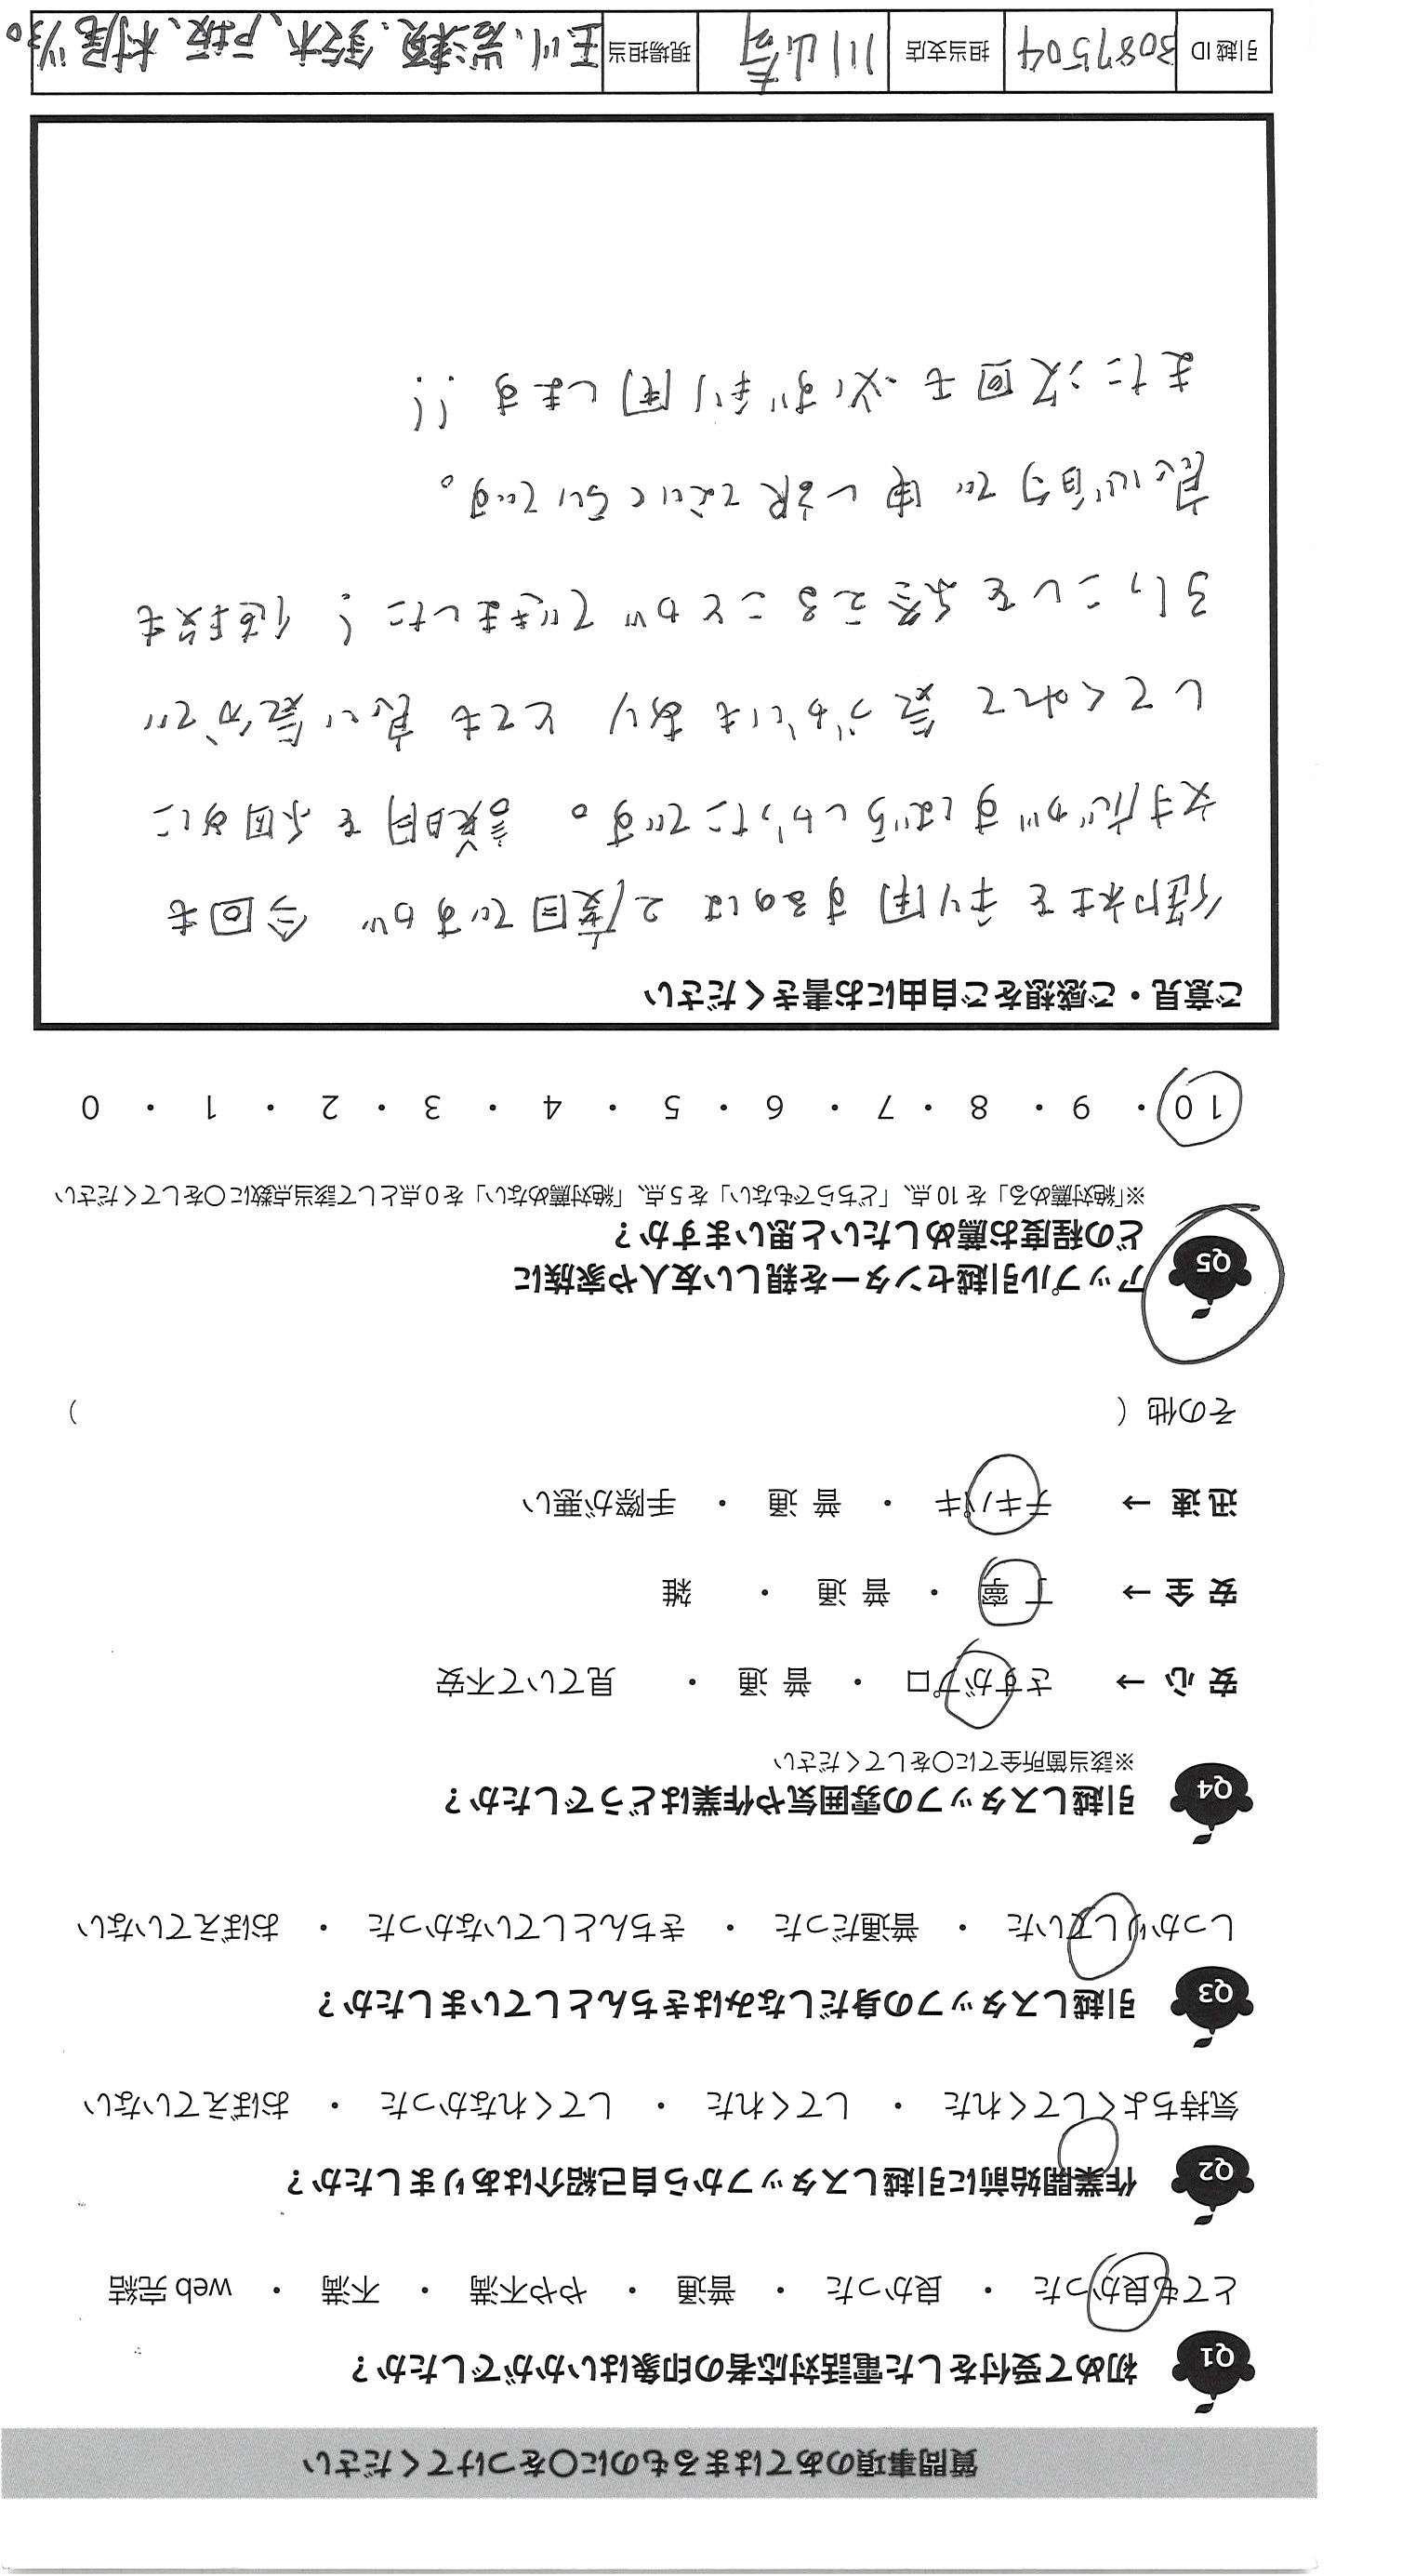 質問事項のあてはまるものに○をつけてください
Q1 初めて受付をした電話対応者の印象はいかがでしたか？
とても良かった ・ 良かった ・ 普通 ・ やや不満 ・ 不満 ・ web 完結
Q2 作業開始前に引越しスタッフから自己紹介はありましたか？
気持ちよくしてくれた ・ してくれた ・ してくれなかった ・ おぼえていない
Q3 引越しスタッフの身だしなみはきちんとしていましたか？
しっかりしていた ・ 普通だった ・ きちんとしていなかった ・ おぼえていない
Q4 引越しスタッフの雰囲気や作業はどうでしたか？
※該当箇所全てに○をしてください
安 心 → さすがプロ ・ 普 通 ・ 見ていて不安
安 全 → 丁 寧 ・ 普 通 ・ 雑
迅 速 → テキパキ ・ 普 通 ・ 手際が悪い
その他（ ）
Q5 アップル引越センターを親しい友人や家族に
どの程度お薦めしたいと思いますか？
※「絶対薦める」を 10 点、「どちらでもない」を 5 点、「絶対薦めない」を 0 点として該当点数に○をしてください
10 ・ 9 ・ 8 ・ 7 ・ 6 ・ 5 ・ 4 ・ 3 ・ 2 ・ 1 ・ 0
ご意見・ご感想をご自由にお書きください
御社を利用するのは2度目ですが 今回も
対応がすばらしかったです。 説明を小まめに
してくれて 気づかいもあり とても良い気分で
引っこしを終えることができました！ 値段も
良心的で申し訳ないくらいです。
また次回も必ず利用します！！
引越 ID 3087504 担当支店 川崎 現場担当 玉川、岩瀬、鈴木、戸坂、村尾